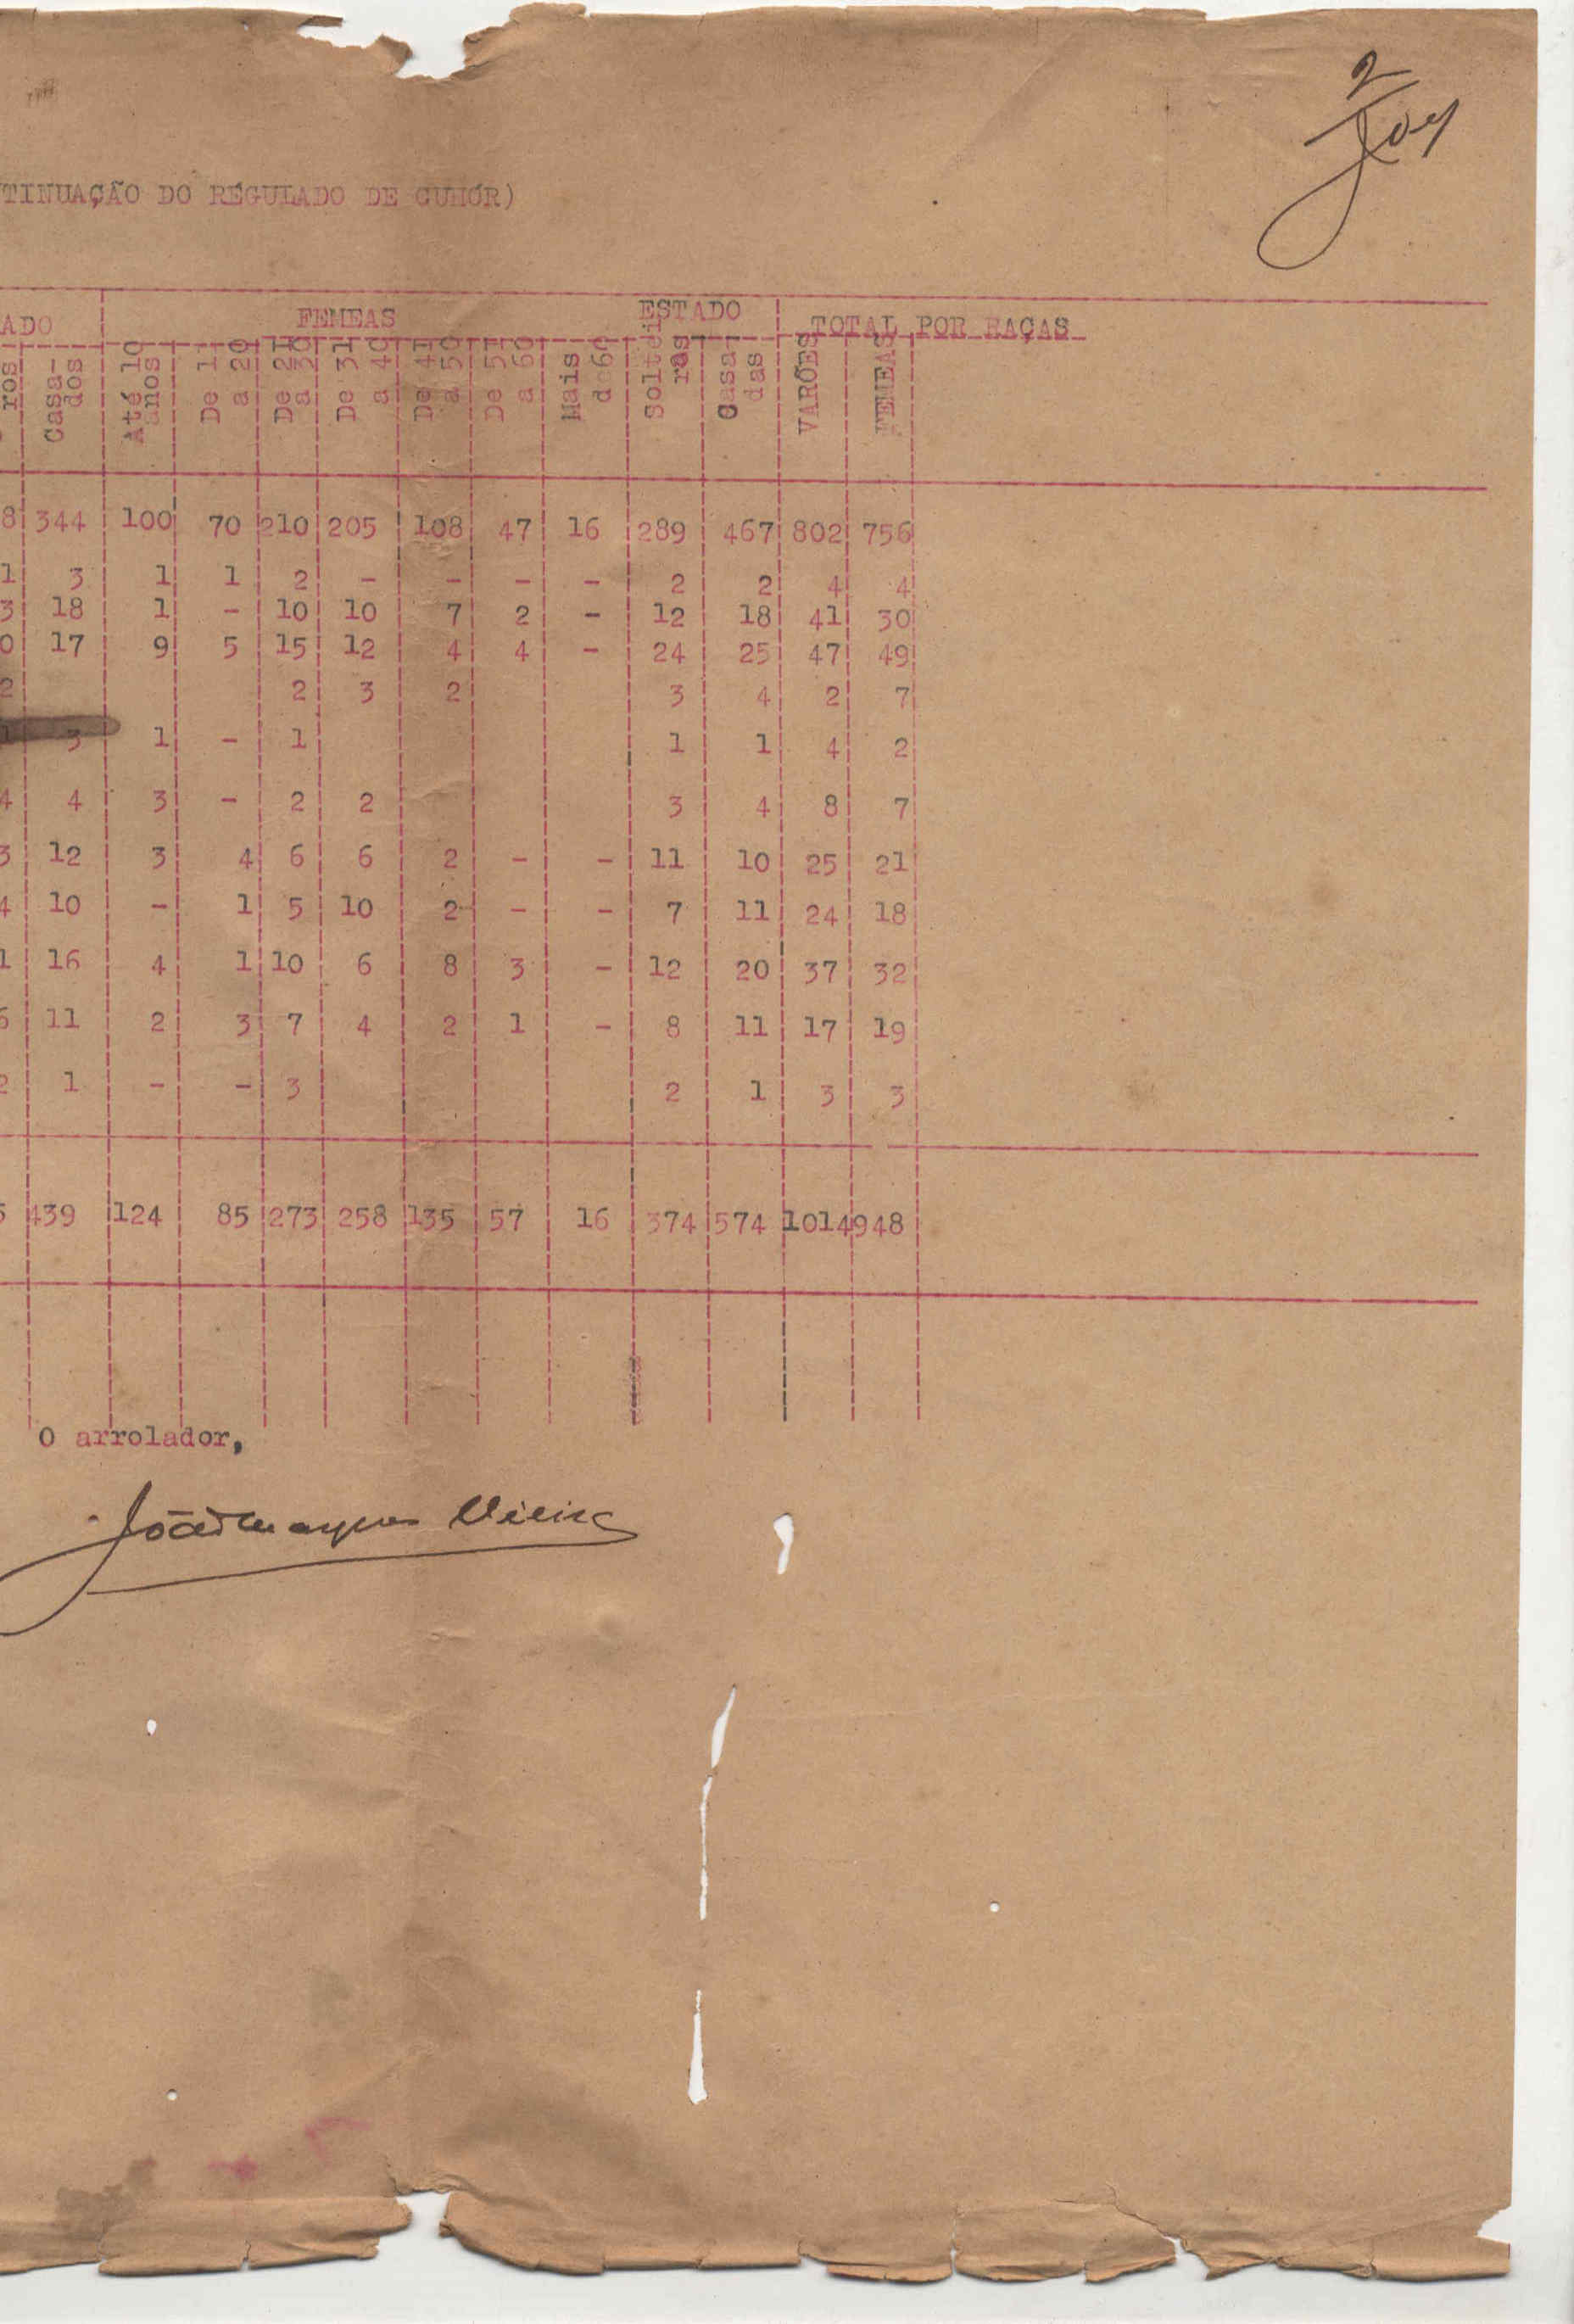 2
TINUAÇÃO DO RÉGULADO DE CUHÓR)
ADO FEMEAS ESTADO TOTAL POR RAÇAS
ros Casa-dos Até 10 anos De 11 a 20 De 21 a 30 De 31 a 40 De 41 a 50 De 51 a 60 Mais de60 Soltei ras Casa-das VARÕES FEMEAS
8 344 100 70 210 205 108 47 16 289 467 802 756
1 3 1 1 2 - - - - 2 2 4 4
3 18 1 - 10 10 7 2 - 12 18 41 30
0 17 9 5 15 12 4 4 - 24 25 47 49
2 2 3 2 3 4 2 7
1 3 1 - 1 1 1 4 2
4 4 3 - 2 2 3 4 8 7
3 12 3 4 6 6 2 - - 11 10 25 21
4 10 - 1 5 10 2 - - 7 11 24 18
1 16 4 1 10 6 8 3 - 12 20 37 32
6 11 2 3 7 4 2 1 - 8 11 17 19
2 1 - - 3 2 1 3 3
5 439 124 85 273 258 135 57 16 374 574 1014 948
O arrolador,
João Marques Vieira